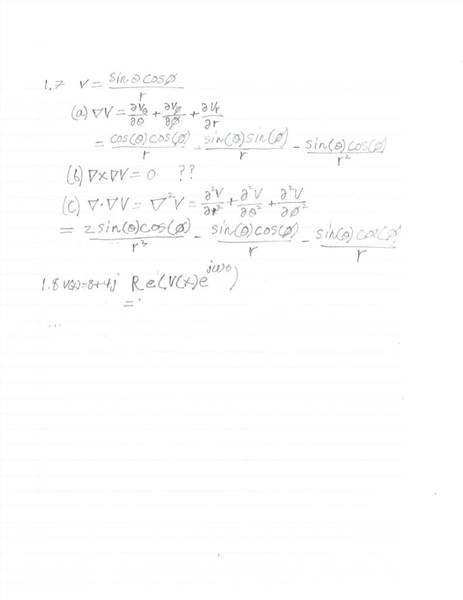 1.7 V = sinθcosφ/r
(a) ∇V = ∂Vθ/∂θ + ∂Vφ/∂φ + ∂Vr/∂r
= cos(θ)cos(φ)/r - sin(θ)sin(φ)/r - sin(θ)cos(φ)/r²
(b) ∇×∇V = 0 ??
(c) ∇·∇V = ∇²V = ∂²V/∂r² + ∂²V/∂θ² + ∂²V/∂φ²
= 2sin(θ)cos(φ)/r³ - sin(θ)cos(φ)/r - sin(θ)cos(φ)/r
1.8 V(x)=8+4j Re(V(x)e^jωt)
=
...